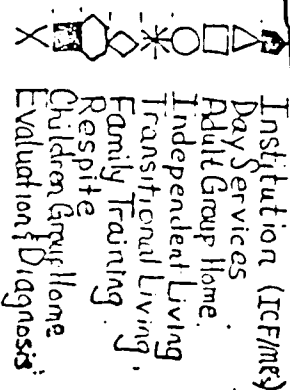 Institution (ICF/mr)
Day Services
Adult Group Home
Independent Living
Transitional Living
Family Training
Respite
Children Group Home
Evaluation & Diagnosis